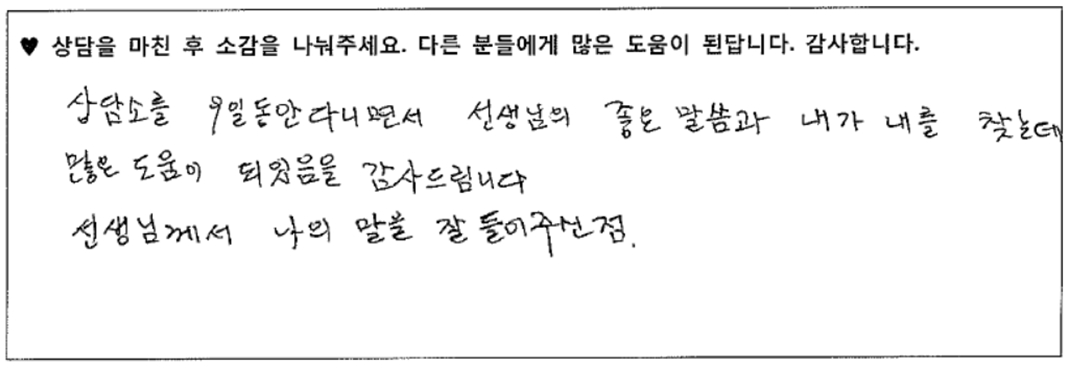 ♥ 상담을 마친 후 소감을 나눠주세요. 다른 분들에게 많은 도움이 된답니다. 감사합니다.
상담소를 9일동안 다니면서 선생님의 좋은 말씀과 내가 내를 찾는데
많은 도움이 되었음을 감사드립니다
선생님께서 나의 말을 잘 들어주신점.